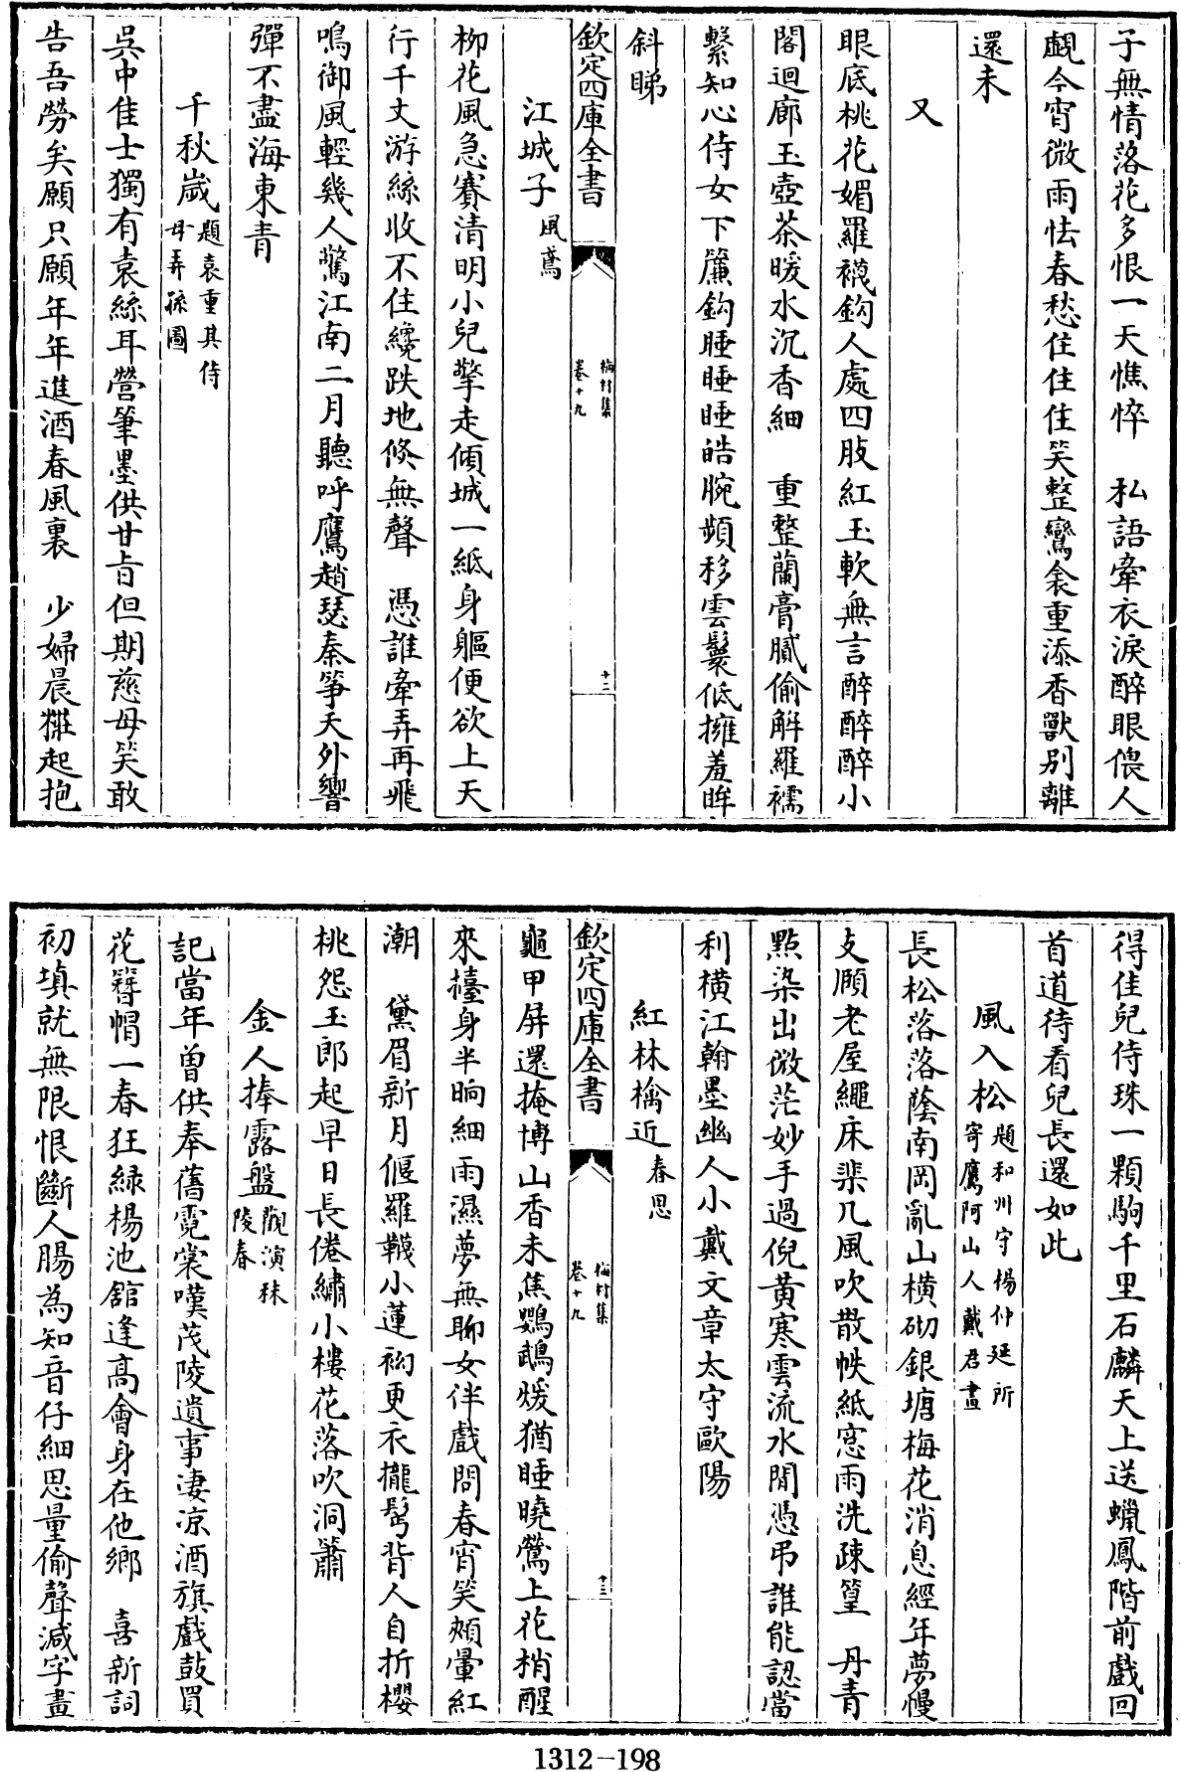 子無情落花多恨一天憔悴　私語牽衣淚醉眼偎人
覷今宵微雨怯春愁住住住笑整鸞衾重添香獸别離
還未
又
眼底桃花媚羅襪鈎人處四肢紅玉軟無言醉醉醉小
閣迴廊玉壺茶暖水沉香細　重整蘭膏膩偷解羅襦
繫知心侍女下簾鈎睡睡睡皓腕頻移雲鬟低擁羞眸
斜睇
欽定四庫全書
梅村集
卷十九
十二
江城子風鳶
柳花風急賽清明小兒擎走傾城一紙身軀便欲上天
行千丈游絲收不住纔跌地倏無聲　憑誰牽弄再飛
鳴御風輕幾人驚江南二月聽呼鷹趙瑟秦箏天外響
彈不盡海東青
千秋歲題袁重其侍
母弄孫圖
吳中佳士獨有袁絲耳營筆墨供甘旨但期慈母笑敢
告吾勞矣願只願年年進酒春風裏　少婦晨粧起抱
得佳兒侍珠一顆駒千里石麟天上送蠟鳳階前戲回
首道待看兒長還如此
風入松題和州守楊仲延所
寄鷹阿山人戴君畫
長松落落蔭南岡亂山横砌銀塘梅花消息經年夢慢
支頤老屋繩床棐几風吹散帙紙窻雨洗疎篁　丹青
點染出微茫妙手過倪黄寒雲流水閒憑弔誰能認當
利横江翰墨幽人小戴文章太守歐陽
紅林檎近春思
欽定四庫全書
梅村集
卷十九
十三
龜甲屏還掩博山香未焦鸚鵡煖猶睡曉鶯上花梢醒
來擡身半晌細雨濕夢無聊女伴戲問春宵笑頰暈紅
潮　黛眉新月偃羅韈小蓮袎更衣攏髩背人自折櫻
桃怨玉郎起早日長倦繡小樓花落吹洞簫
金人捧露盤觀演秣
陵春
記當年曽供奉舊霓裳嘆茂陵遺事凄凉酒旗戲鼓買
花簪帽一春狂緑楊池舘逢髙會身在他鄉　喜新詞
初填就無限恨斷人腸為知音仔細思量偷聲減字畫
1312-198